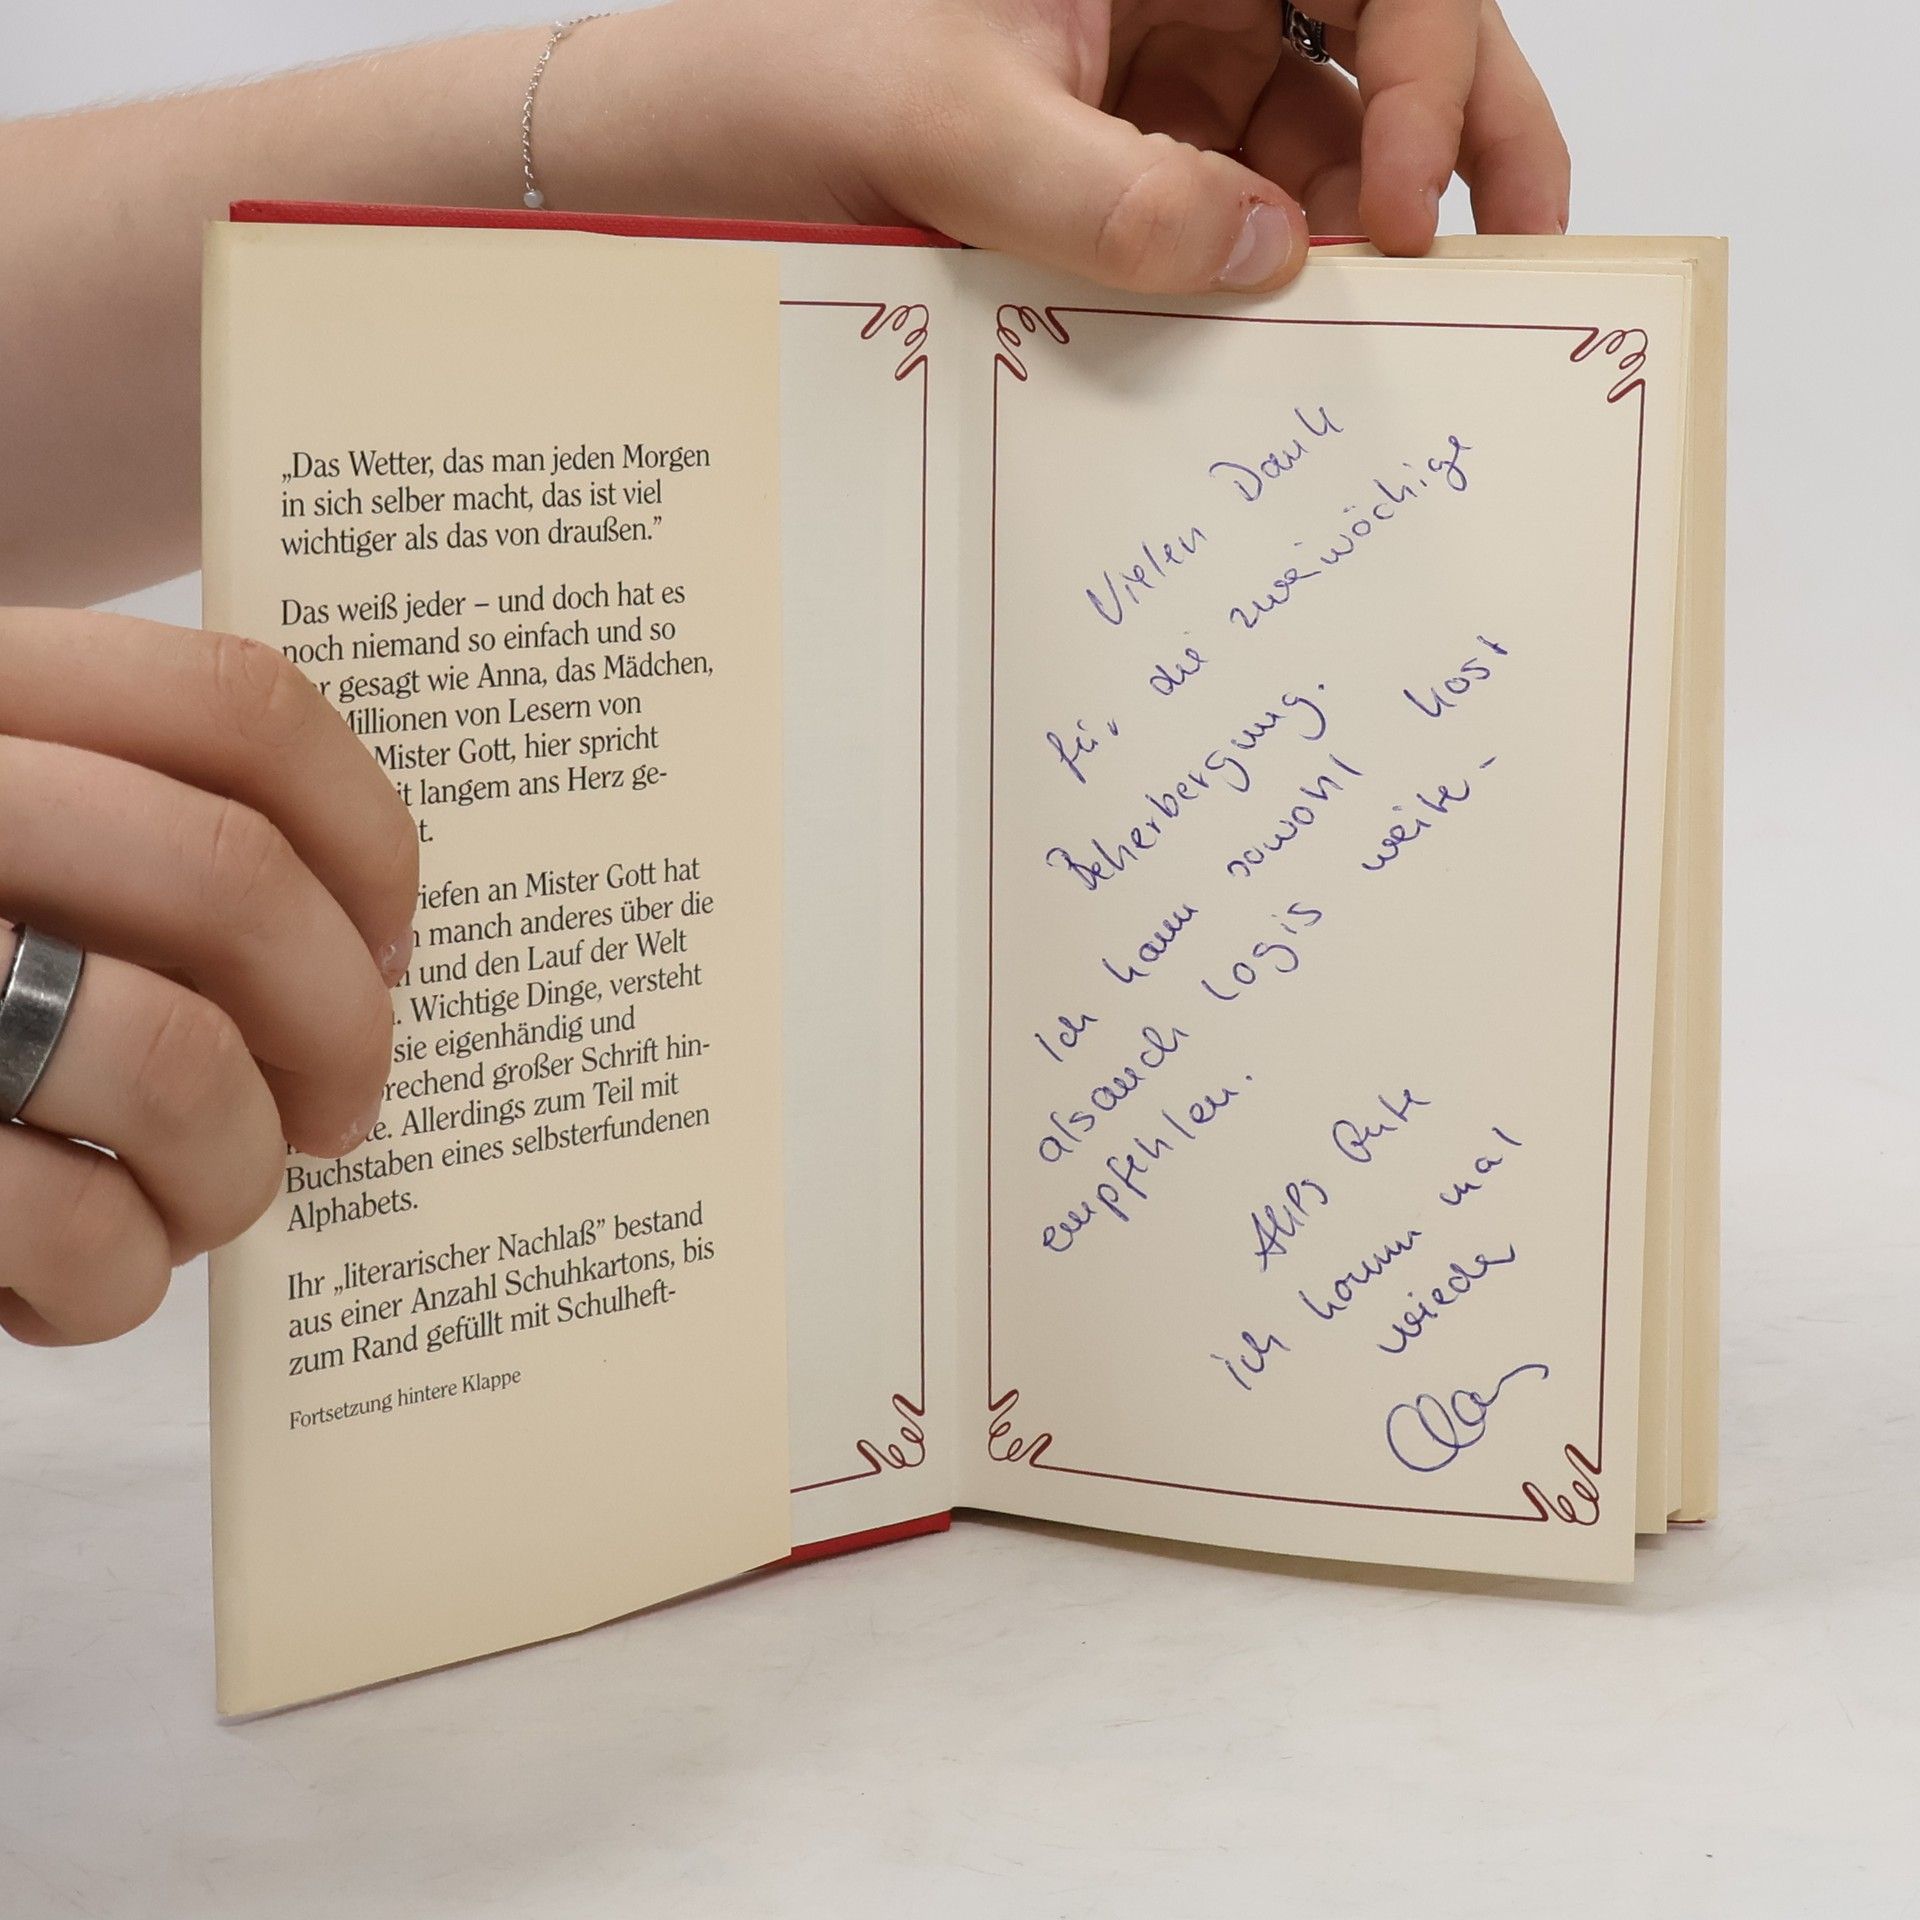 „Das Wetter, das man jeden Morgen
in sich selber macht, das ist viel
wichtiger als das von draußen.”
Das weiß jeder – und doch hat es
noch niemand so einfach und so
gesagt wie Anna, das Mädchen,
Millionen von Lesern von
Mister Gott, hier spricht
langem ans Herz ge-
an Mister Gott hat
manch anderes über die
und den Lauf der Welt
Wichtige Dinge, versteht
sie eigenhändig und
großer Schrift hin-
Allerdings zum Teil mit
Buchstaben eines selbsterfundenen
Alphabets.
Ihr „literarischer Nachlaß” bestand
aus einer Anzahl Schuhkartons, bis
zum Rand gefüllt mit Schulheft-
Fortsetzung hintere Klappe
Vielen Dank
für die zweiwöchige
Beherbergung.
Ich kann sowohl Kost
alsauch Logis weiter-
empfehlen.
Alles Gute
ich komm mal
wieder